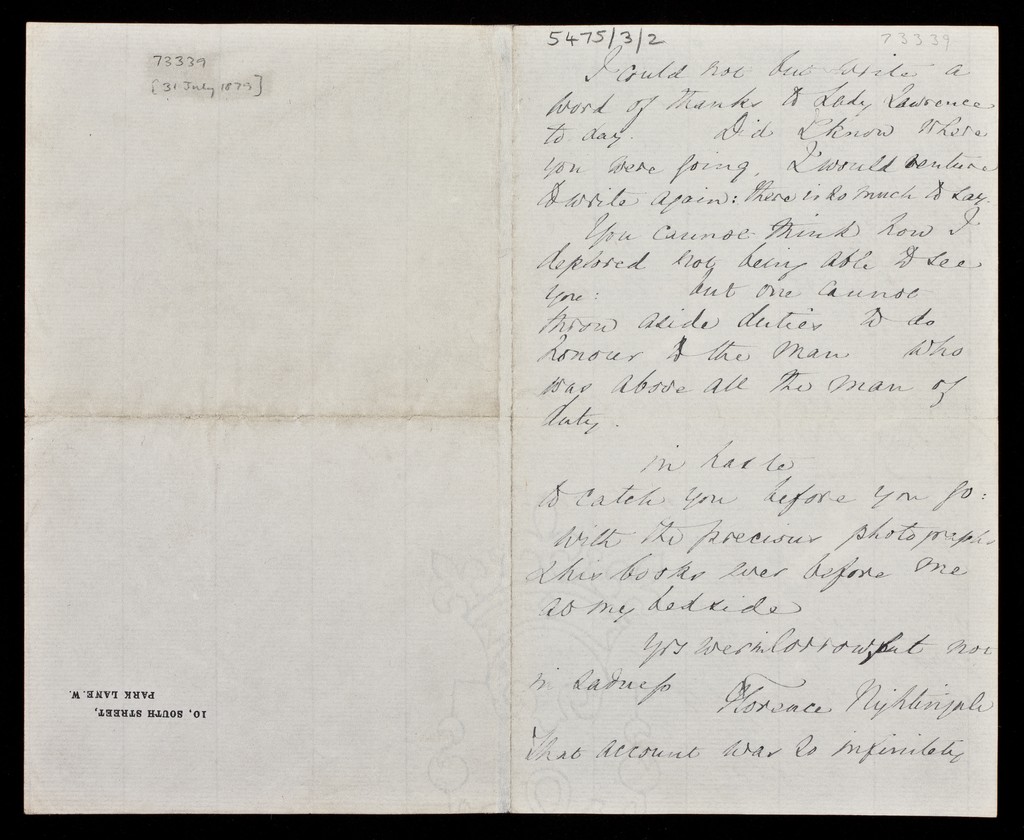 73339
[31 July 1879]
10, SOUTH STREET,
PARK LANE. W.
5475/3/2
73339
I could not but write a
word of thanks to Lady Lawrence
to day. Did I know where
you were going, I would venture
to write again: there is so much to say.
You cannot think how I
deplored not being able to see
you: but one cannot
throw aside duties to do
honour to the man who
was above all the man of
duty.
in haste
to catch you before you go:
with the precious photographs
& his books ever before me
at my bedside
yrs ever in sorrow, but not
in sadness
Florence Nightingale
that account was so infinitely